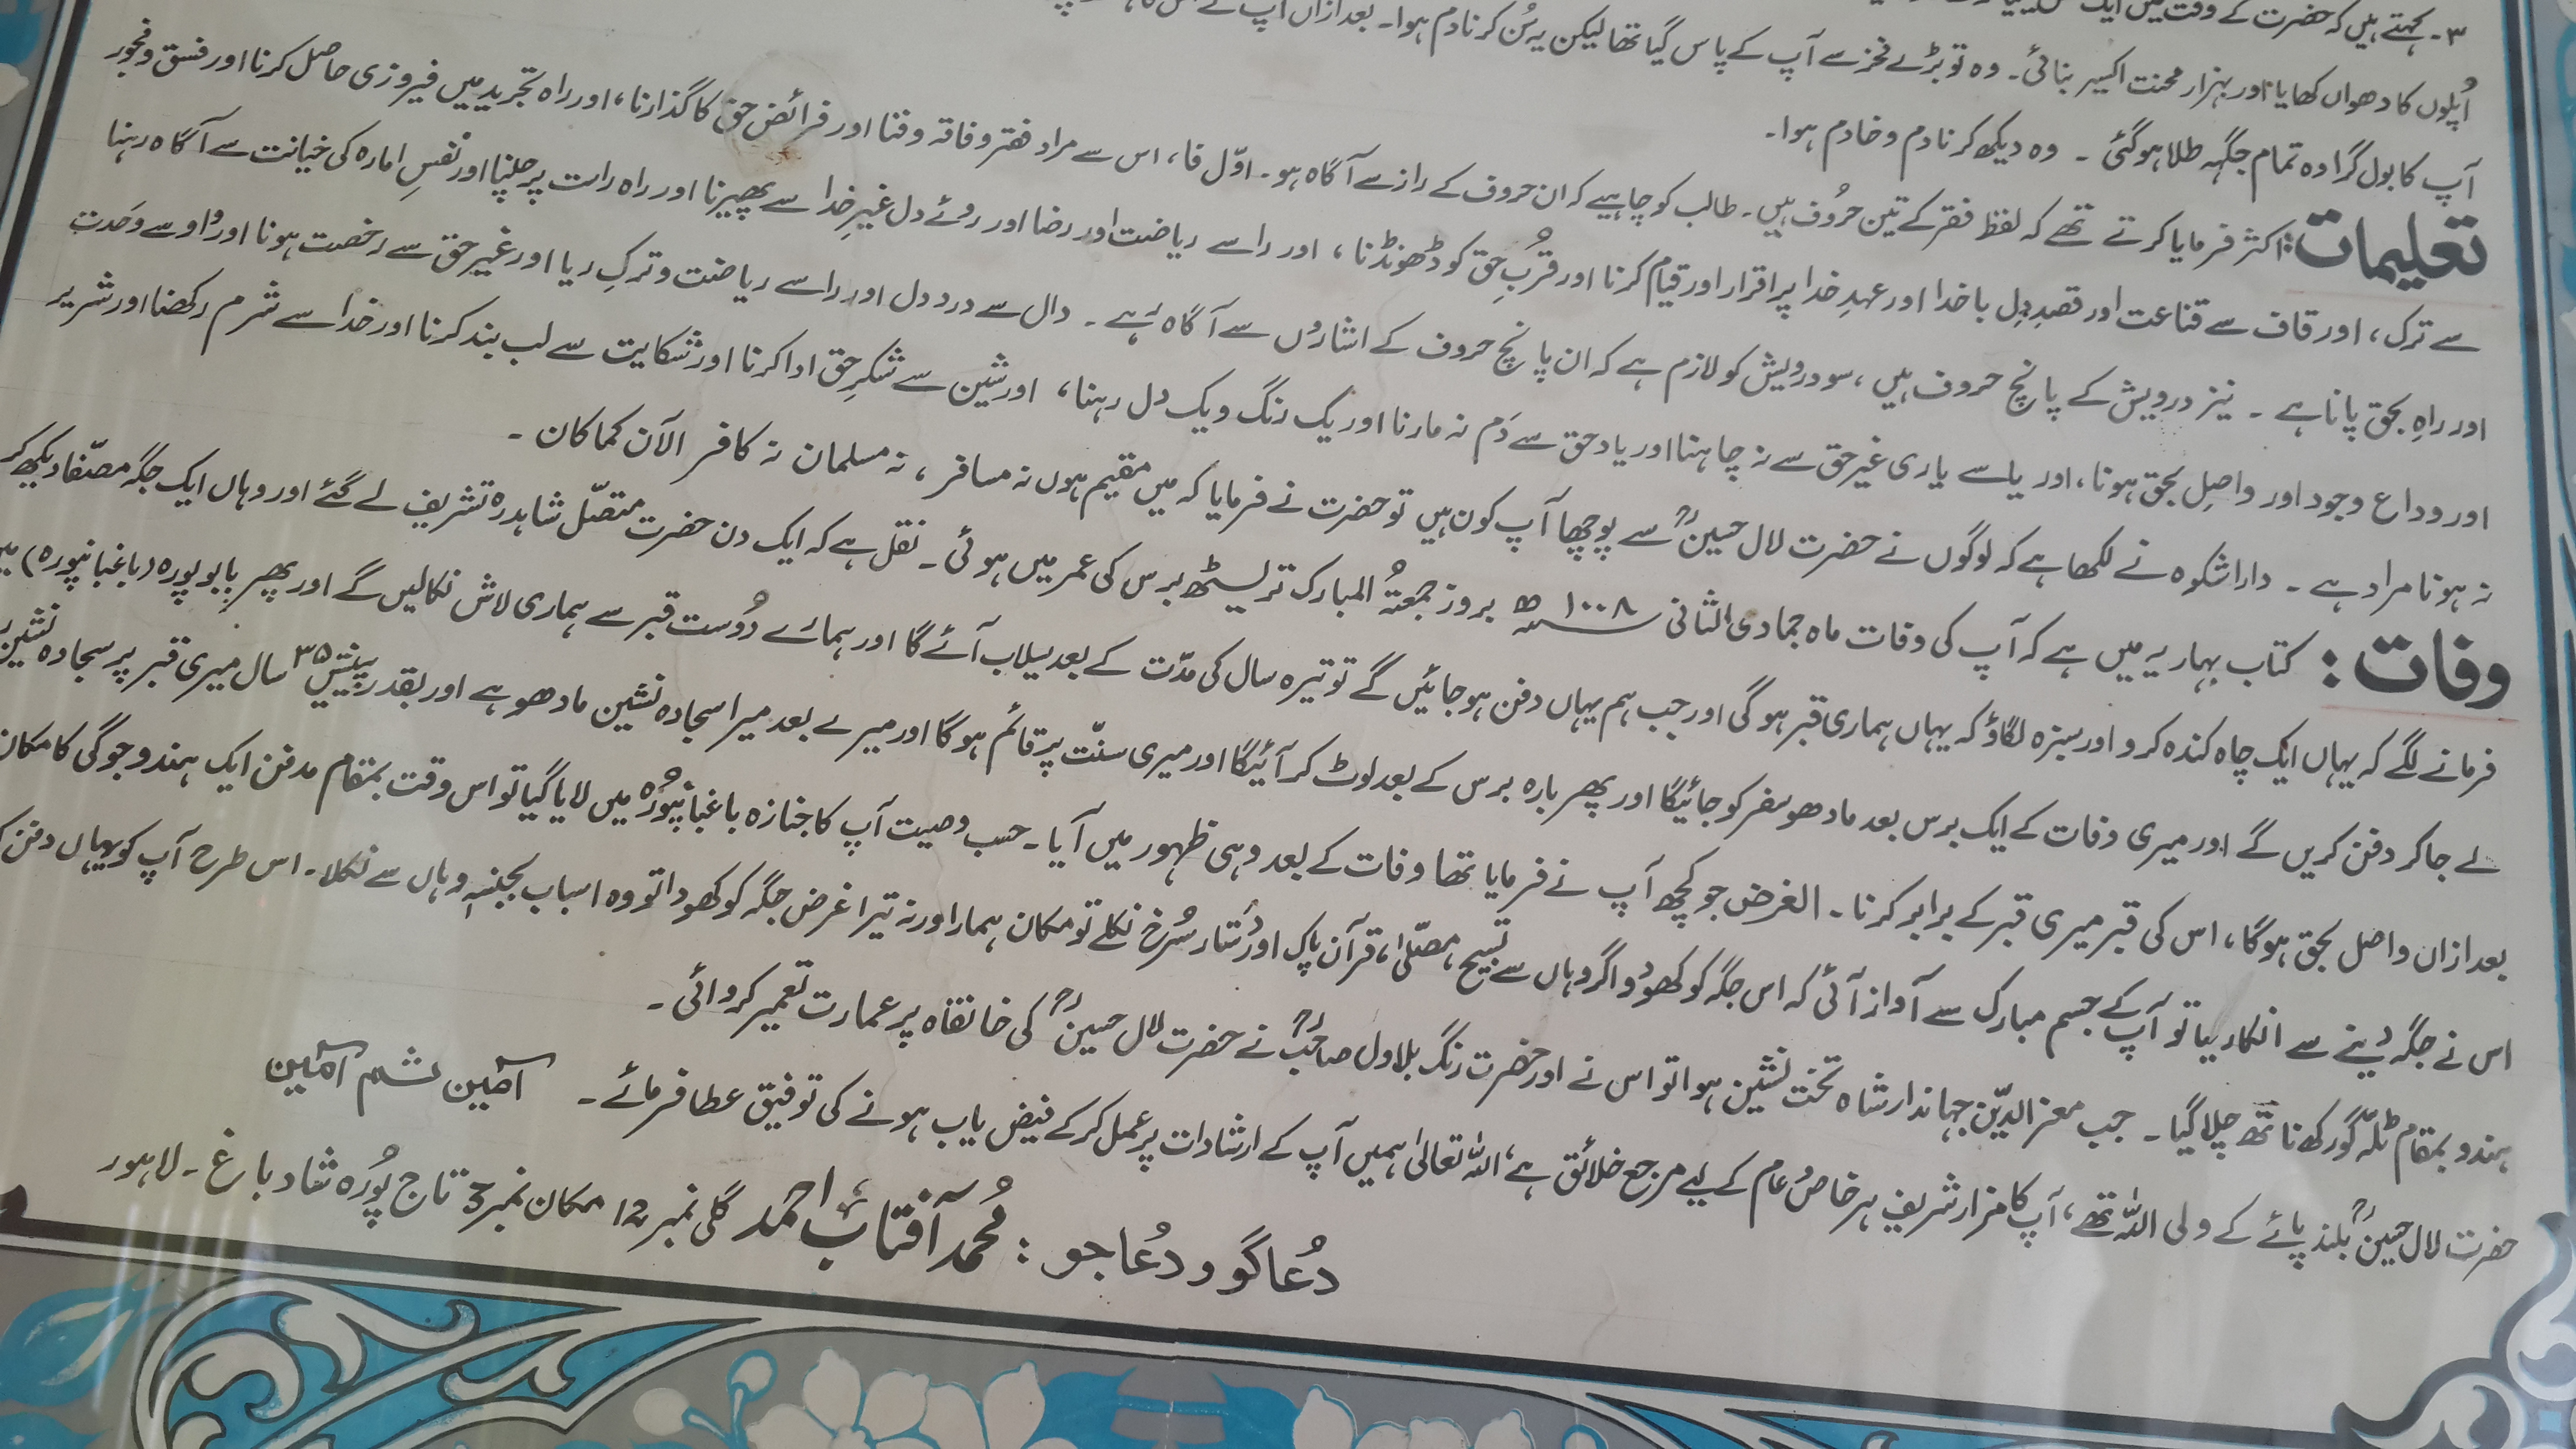 ۳۔ کہتے ہیں کہ حضرت کے وقت میں ایک
اُپلوں کا دھواں کھایا اور بہزار محنت اکسیر بنائی۔ وہ تو بڑے فخر سے آپ کے پاس گیا تھا لیکن یہ سُن کر نادم ہوا۔ بعد ازاں آپ کے
آپ کا بول گرا وہ تمام جگہہ طلا ہوگئی ۔ وہ دیکھ کر نادم و خادم ہوا۔
تعلیمات: اکثر فرمایا کرتے تھے کہ لفظ فقر کے تین حرُوف ہیں۔ طالب کو چاہیے کہ ان حروف کے راز سے آگاہ ہو۔ اوّل فا، اس سے مراد فقر و فاقہ و فنا اور فرائض حق کا گذارنا، اور راہ تجرید میں فیروزی حاصل کرنا اور فسق و فجور
سے ترک، اور قاف سے قناعت اور قصدِ دِل با خدا اور عہدِ خدا پر اقرار اور قیام کرنا اور قُربِ حق کو ڈھونڈنا، اور را سے ریاضت اور رضا اور روئے دل غیرِ خدا سے پھیرنا اور راہ راست پر چلنا اور نفسِ امارہ کی خیانت سے آگاہ رہنا
اور راہِ بحق پانا ہے ۔ نیز درویش کے پانچ حروف ہیں، سو درویش کو لازم ہے کہ ان پانچ حروف کے اشاروں سے آگاہ رہے ۔ دال سے درد دل اور را سے ریاضت و ترکِ ریا اور غیر حق سے رخصت ہونا اور واو سے وَحدت
اور وداع وجود اور واصِل بحق ہونا، اور یا سے یاری غیر حق سے نہ چاہنا اور یاد حق سے دَم نہ مارنا اور یک رنگ و یک دل رہنا، اور شین سے شکرِ حق ادا کرنا اور شکایت سے لب بند کرنا اور خدا سے شرم رکھنا اور شریر
نہ ہونا مراد ہے ۔ داراشکوہ نے لکھا ہے کہ لوگوں نے حضرت لال حسینؒ سے پوچھا آپ کون ہیں تو حضرت نے فرمایا کہ میں مقیم ہوں نہ مسافر، نہ مسلمان نہ کافر الآن کماکان ۔
وفات: کتاب بہاریہ میں ہے کہ آپ کی وفات ماہ جمادی الثانی ۱۰۰۸ھ بروز جمعتُہ المبارک تریسٹھ برس کی عمر میں ہوئی۔ نقل ہے کہ ایک دن حضرت متصّل شاہدرہ تشریف لے گئے اور وہاں ایک جگہ مصفّا دیکھ کر
فرمانے لگے کہ یہاں ایک چاہ کندہ کرو اور سبزہ لگاؤ کہ یہاں ہماری قبر ہوگی اور جب ہم یہاں دفن ہو جائیں گے تو تیرہ سال کی مدّت کے بعد سیلاب آئے گا اور ہمارے دُوست قبر سے ہماری لاش نکالیں گے اور پھر بابو پورہ (باغبانپورہ) میں
لے جا کر دفن کریں گے اور میری وفات کے ایک برس بعد مادھو سفر کو جائیگا اور پھر بارہ برس کے بعد لوٹ کر آئیگا اور میری سنّت پر قائم ہوگا اور میرے بعد میرا سجادہ نشین مادھو ہے اور بقدر پینتیس ۳۵ سال میری قبر پر سجادہ نشین
بعد ازاں واصل بحق ہوگا، اس کی قبر میری قبر کے برابر کرنا ۔ الغرض جو کچھ آپ نے فرمایا تھا وفات کے بعد وہی ظہور میں آیا۔ حسب وصیت آپ کا جنازہ باغبانپوُرہ میں لایا گیا تو اس وقت بمقام مدفن ایک ہندو جوگی کا مکان
اس نے جگہ دینے سے انکار کیا تو آپ کے جسم مبارک سے آواز آئی کہ اس جگہ کو کھودو اگر وہاں سے تسبیح، مصلّیٰ، قرآن پاک اور دستار سُرخ نکلے تو مکان ہمارا ورنہ تیرا غرض جگہ کو کھودا تو وہ اسباب بجنسہٖ وہاں سے نکلا۔ اس طرح آپ کو یہاں دفن
ہندو بمقام ٹلّہ گورکھ ناتھ چلا گیا ۔ جب معز الدّین جہاندار شاہ تخت نشین ہوا تو اس نے اور حضرت رنگ بلاول صاحبؒ نے حضرت لال حسینؒ کی خانقاہ پر عمارت تعمیر کروائی ۔
حضرت لال حسینؒ بلند پائے کے ولی اللہ تھے، آپ کا مزار شریف ہر خاص و عام کے لیے مرجع خلائق ہے، اللہ تعالیٰ ہمیں آپ کے ارشادات پر عمل کر کے فیض یاب ہونے کی توفیق عطا فرمائے ۔ آمین ثم آمین
دُعا گو و دُعا جو : مُحمد آفتاب احمد گلی نمبر 12 مکان نمبر 3 تاج پُورہ شاد باغ ۔ لاہور